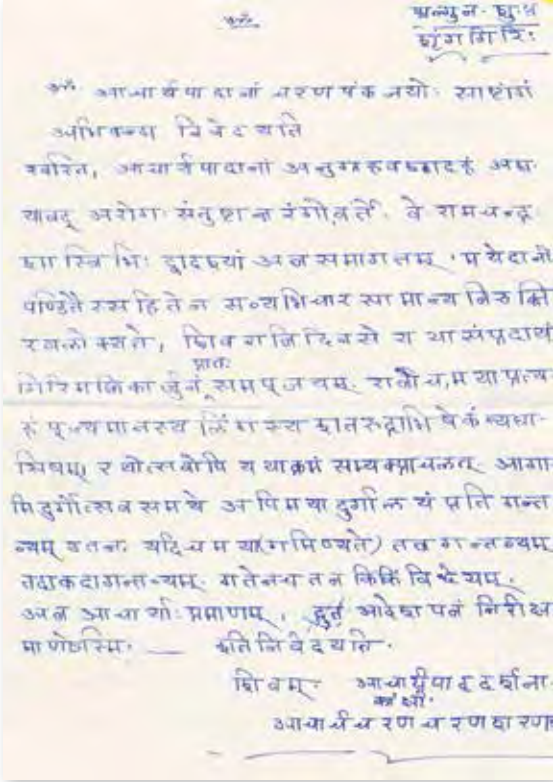 ॐ
फाल्गुन. शु. ५
शृंगगिरिः
ॐ आचार्यपादानां चरणपंकजयोः साष्टांगं
अभिवन्द्य निवेदयति
स्वस्ति, आचार्यपादानां अनुग्रहवशादहं अद्य
यावद् अरोगः संतुष्टान्तरंगो वर्ते. वे रामचन्द्र
शास्त्रिभिः द्वादश्यां अत्र समागतम्. मयेदानीं
पण्डितैस्सहितेन सव्यभिचार सामान्य निरुक्ति
रवलोक्यते, शिवरात्रिदिवसे यथासंप्रदायं
प्रातः
गिरिमल्लिकार्जुनं समपूजयम्. रात्रौ च, मया प्रत्य
हं पूज्यमानस्य लिंगस्य शतरुद्राभिषेकं व्यधा-
सिषम्. रथोत्सवोपि यथाक्रमं सम्यक्प्राचलत्. आगा
मिदुर्गोत्सवसमये अपि मया दुर्गालयं प्रति गन्त
व्यम् वा न. यदि च मया (गमिष्यते) तत्र गन्तव्यम्
तदा कदा गन्तव्यम्. गतेन च तत्र किं किं विधेयम्.
अत्र आचार्याः प्रमाणम्. द्रुतं आदेशपत्रं निरीक्ष
माणोऽस्मि. — इति निवेदयति.
शिवम्. आचार्यपाददर्शना.
कांक्षी.
आचार्यचरणचरणशरण